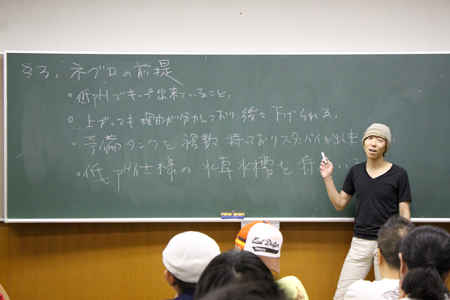 §3. ネグロの前提
・低pHでキープ出来ていること。
・上がっても理由が分かっており緩く下げられる。
・予備タンクを複数持っておりスタンバイ出来
・低pH仕様の水草水槽を持
East Dallas